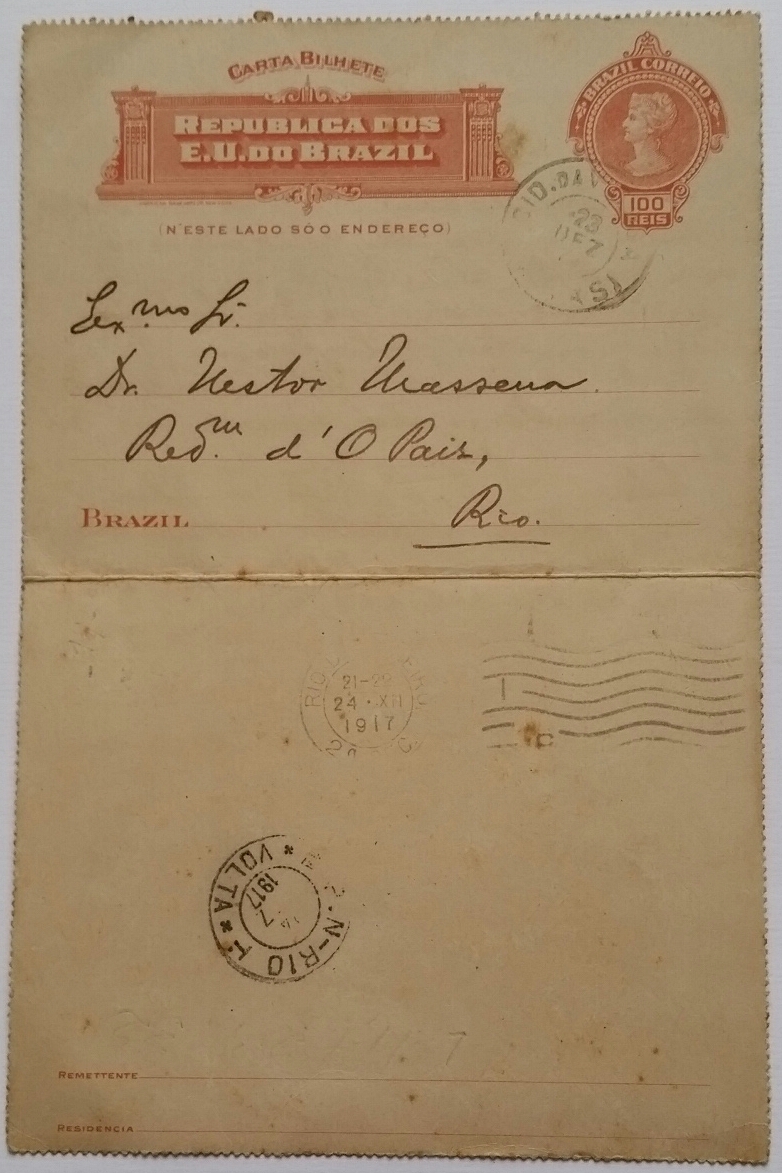 CARTA BILHETE
REPUBLICA DOS
E.U. DO BRAZIL
BRAZIL CORREIO
100
REIS
(N'ESTE LADO SÓ O ENDEREÇO)
23
DEZ
Ex.mo Sr.
Dr. Nestor Massena.
Red.m d'O Paiz,
BRAZIL Rio.
21-22
24 · XII
1917
N-RIO
* VOLTA *
1917
REMETTENTE
RESIDENCIA